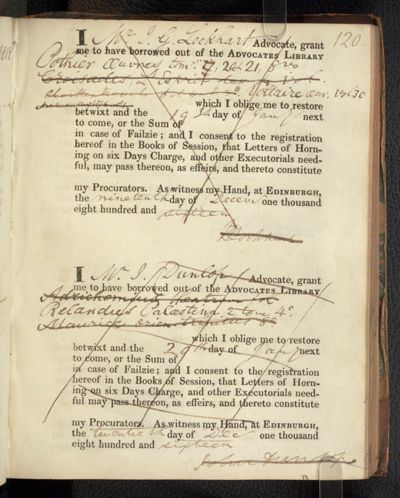 120
I Mr J. G. Lockhart Advocate, grant
me to have borrowed out of the ADVOCATES LIBRARY
Pothier
Voltaire
which I oblige me to restore
betwixt and the 19th day of Jany next
to come, or the Sum of
in case of Failzie; and I consent to the registration
hereof in the Books of Session, that Letters of Horn-
ing on six Days Charge, and other Executorials need-
ful, may pass thereon, as effeirs, and thereto constitute
my Procurators. As witness my Hand, at EDINBURGH,
the nineteenth day of Decem one thousand
eight hundred and sixteen
I Mr J. Dunlop Advocate, grant
me to have borrowed out of the ADVOCATES LIBRARY
Relandus Palestina 2 tom 4o
Maurice
which I oblige me to restore
betwixt and the 20th day of Jany next
to come, or the Sum of
in case of Failzie; and I consent to the registration
hereof in the Books of Session, that Letters of Horn-
ing on six Days Charge, and other Executorials need-
ful may pass thereon, as effeirs, and thereto constitute
my Procurators. As witness my Hand, at EDINBURGH,
the twentieth day of Dec one thousand
eight hundred and sixteen
John Dunlop